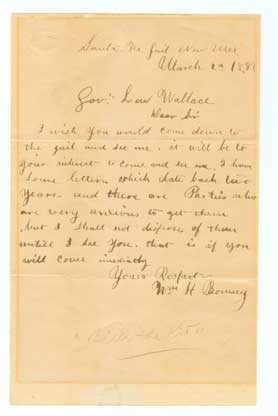 Santa Fe Jail New Mex
March 2d 1881
Gov. Lew Wallace
Dear Sir
I wish you would come down to
the jail and see me. it will be to
your interest to come and see me. I have
some letters which date back two
years and there are Parties who
are very anxious to get them
but I shall not dispose of them
untill I see you. that is if you
will come imediatly
Yours Respect
Wm H Bonney
"Billy the Kid"